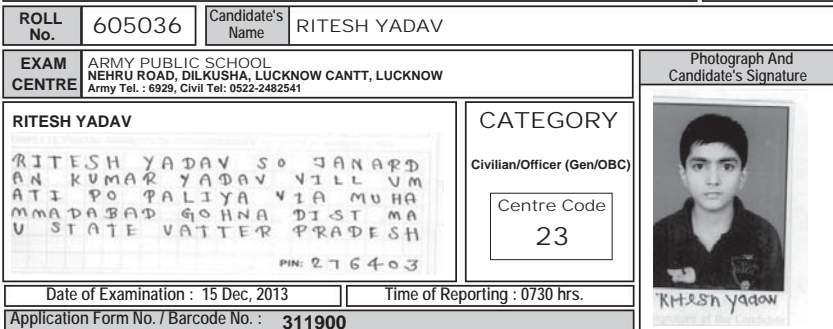 ROLL No. 605036 Candidate's Name RITESH YADAV
EXAM CENTRE
ARMY PUBLIC SCHOOL
NEHRU ROAD, DILKUSHA, LUCKNOW CANTT, LUCKNOW
Army Tel. : 6929, Civil Tel: 0522-2482541
Photograph And
Candidate's Signature
RITESH YADAV
RITESH YADAV SO JANARD
AN KUMAR YADAV VILL UM
ATI PO PALIYA VIA MUHA
MMADABAD GOHNA DIST MA
U STATE VATTER PRADESH
PIN: 276403
CATEGORY
Civilian/Officer (Gen/OBC)
Centre Code
23
Ritesh yadav
Date of Examination : 15 Dec, 2013
Time of Reporting : 0730 hrs.
Application Form No. / Barcode No. : 311900